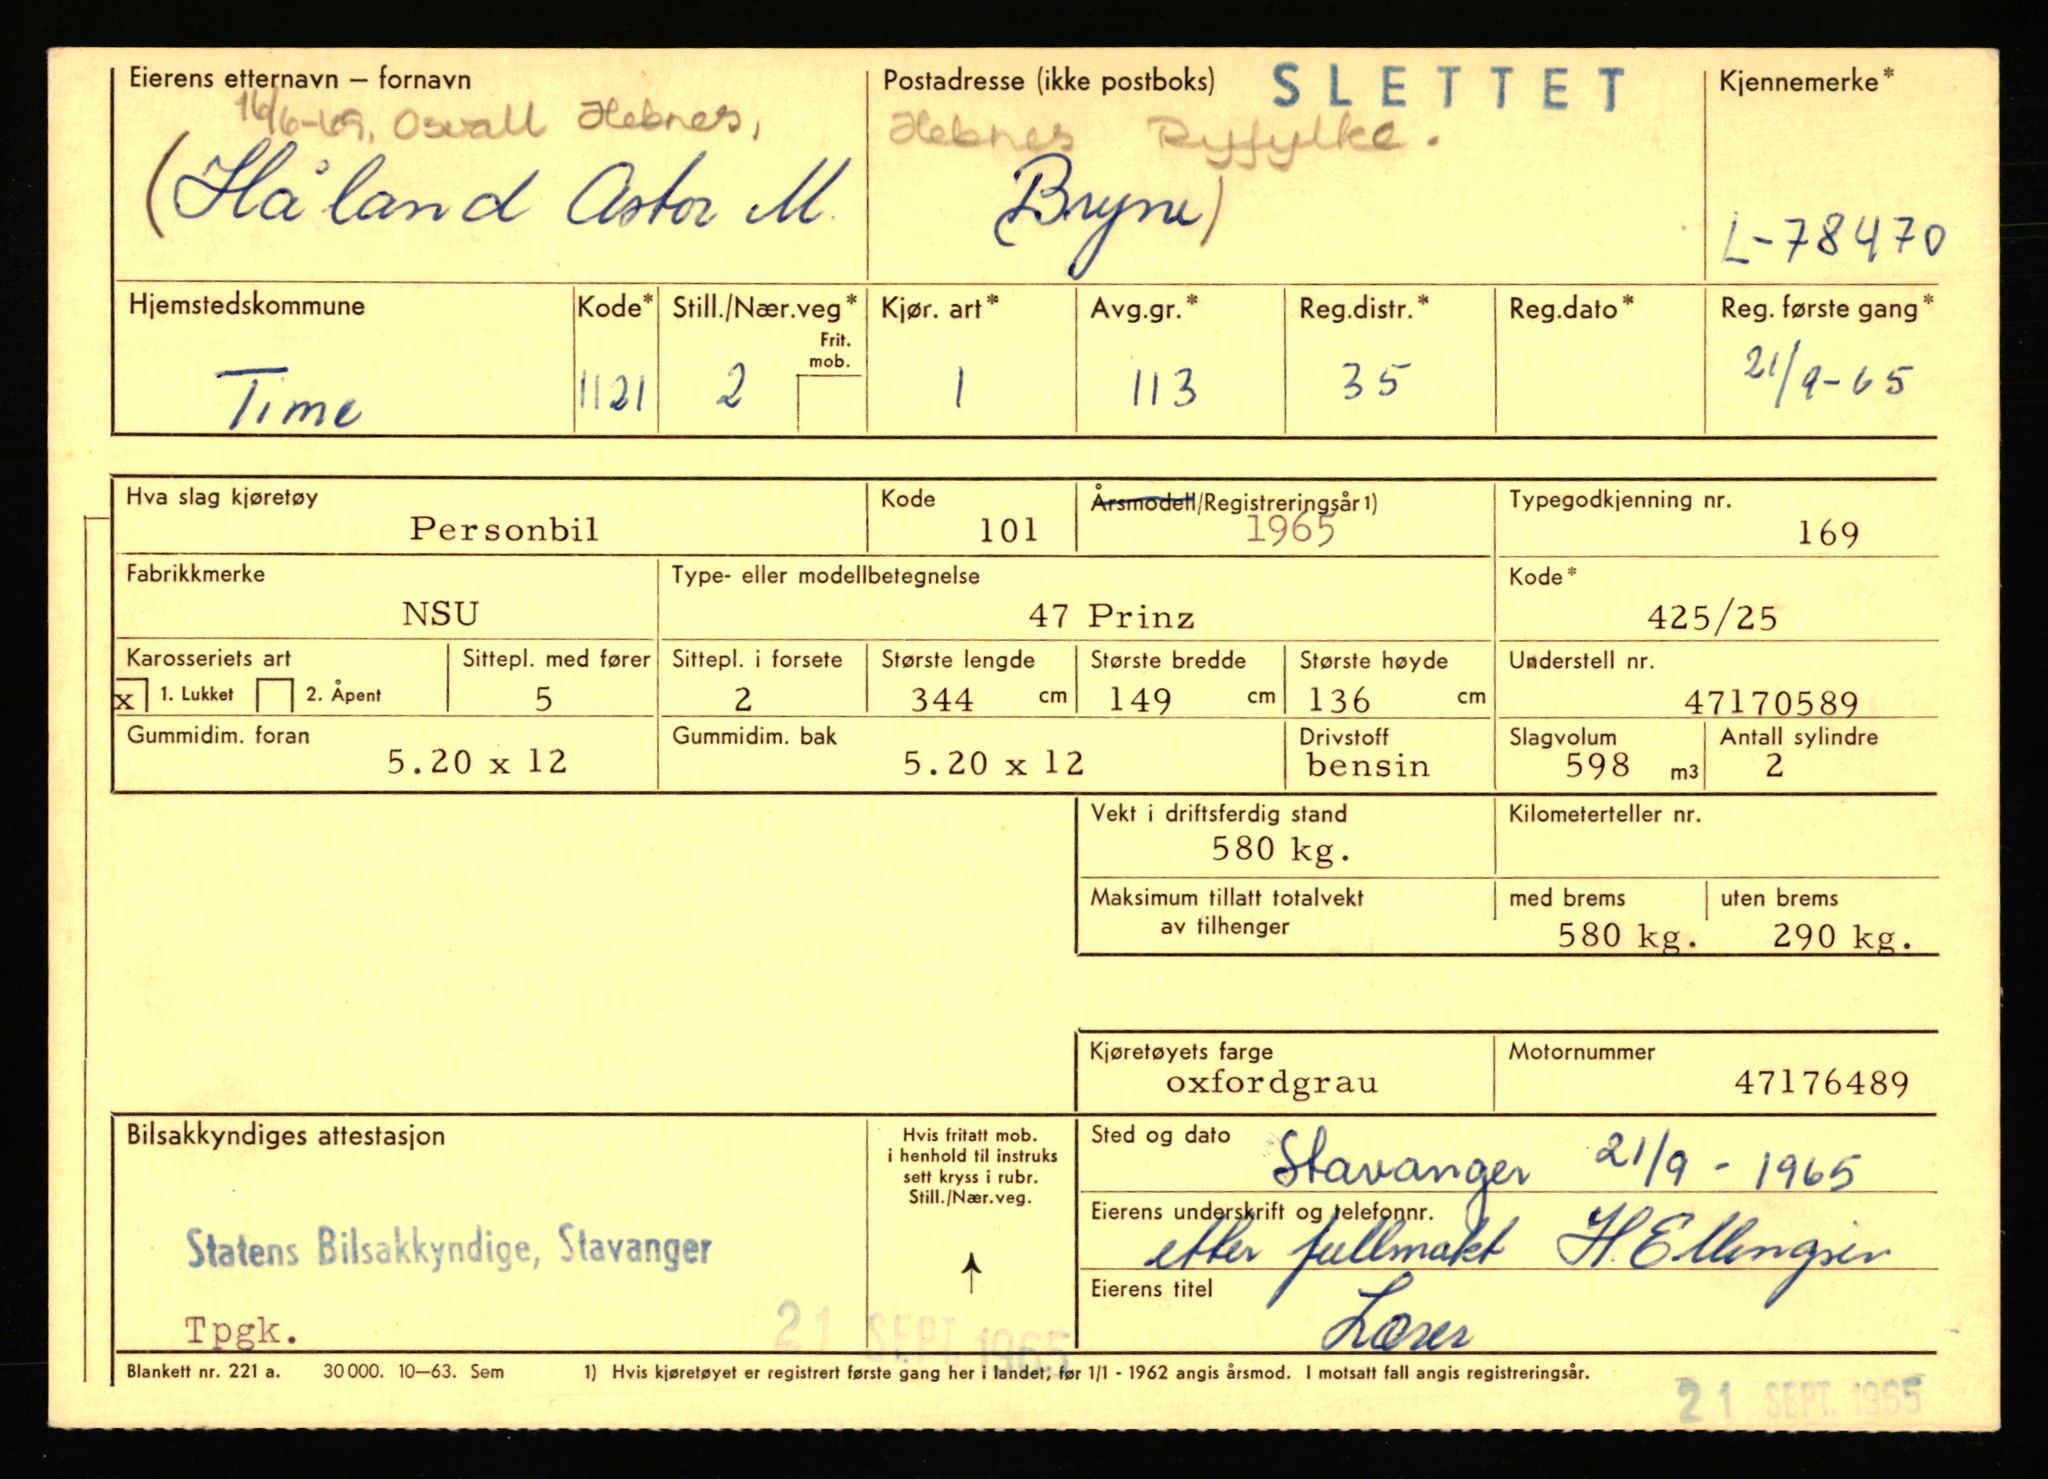 Eierens etternavn – fornavn
Postadresse (ikke postboks)
SLETTET
Kjennemerke*
16/6-69, Osvall Hebnes,
Hebnes Ryfylke.
(Håland Astor M.
Bryne)
L-78470
Hjemstedskommune
Kode*
Still./Nær.veg*
Kjør. art*
Avg.gr.*
Reg.distr.*
Reg.dato*
Reg. første gang*
Frit.
mob.
Time
1121
2
1
113
35
21/9-65
Hva slag kjøretøy
Kode
Årsmodell/Registreringsår 1)
Typegodkjenning nr.
Personbil
101
1965
169
Fabrikkmerke
Type- eller modellbetegnelse
Kode*
NSU
47 Prinz
425/25
Karosseriets art
Sittepl. med fører
Sittepl. i forsete
Største lengde
Største bredde
Største høyde
Understell nr.
x 1. Lukket
2. Åpent
5
2
344 cm
149 cm
136 cm
47170589
Gummidim. foran
Gummidim. bak
Drivstoff
Slagvolum
Antall sylindre
5.20 x 12
5.20 x 12
bensin
598 m3
2
Vekt i driftsferdig stand
Kilometerteller nr.
580 kg.
Maksimum tillatt totalvekt
av tilhenger
med brems
uten brems
580 kg.
290 kg.
Kjøretøyets farge
Motornummer
oxfordgrau
47176489
Bilsakkyndiges attestasjon
Hvis fritatt mob.
i henhold til instruks
sett kryss i rubr.
Still./Nær.veg.
Sted og dato
Stavanger 21/9 - 1965
Eierens underskrift og telefonnr.
etter fullmakt H. Ellingsen
Statens Bilsakkyndige, Stavanger
Eierens titel
Lærer
Tpgk.
21 SEPT. 1965
Blankett nr. 221 a. 30 000. 10–63. Sem
1) Hvis kjøretøyet er registrert første gang her i landet, før 1/1 - 1962 angis årsmod. I motsatt fall angis registreringsår.
21 SEPT. 1965